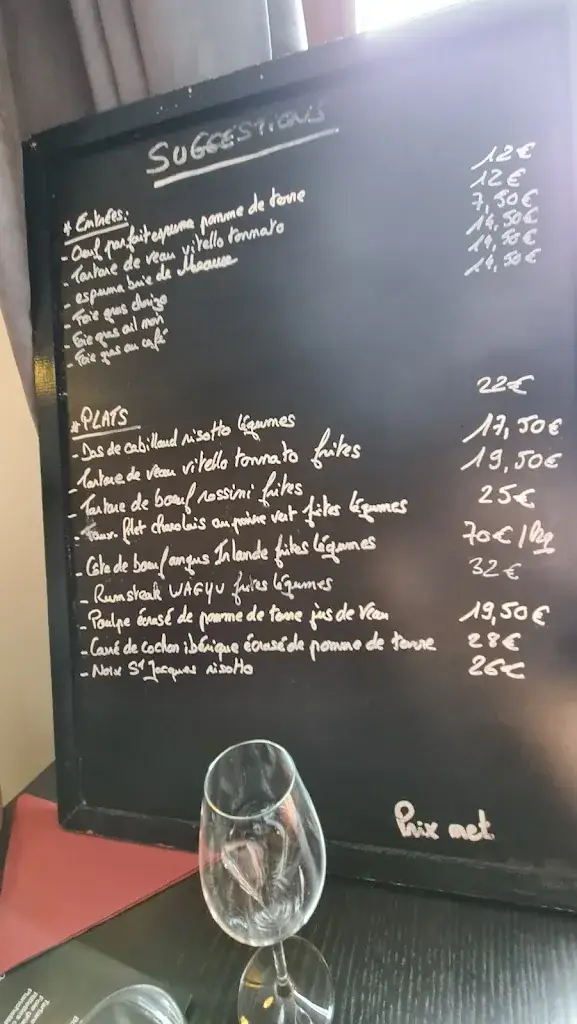 SUGGESTIONS
* Entrées:
- Oeuf parfait espuma pomme de terre 12€
- Tartare de veau vitello tonnato 12€
- espuma brie de Meaux 7,50€
- Foie gras chorizo 14,50€
- Foie gras ail noir 14,50€
- Foie gras au café 14,50€
* PLATS
- Dos de cabillaud risotto légumes 22€
- Tartare de veau vitello tonnato frites 17,50€
- Tartare de boeuf rossini frites 19,50€
- Faux-filet charolais au poivre vert frites légumes 25€
- Côte de boeuf angus Irlande frites légumes 70€/kg
- Rumsteak WAGYU frites légumes 32€
- Poulpe écrasé de pomme de terre jus de veau 19,50€
- Carré de cochon ibérique écrasé de pomme de terre 28€
- Noix St Jacques risotto 26€
Prix net